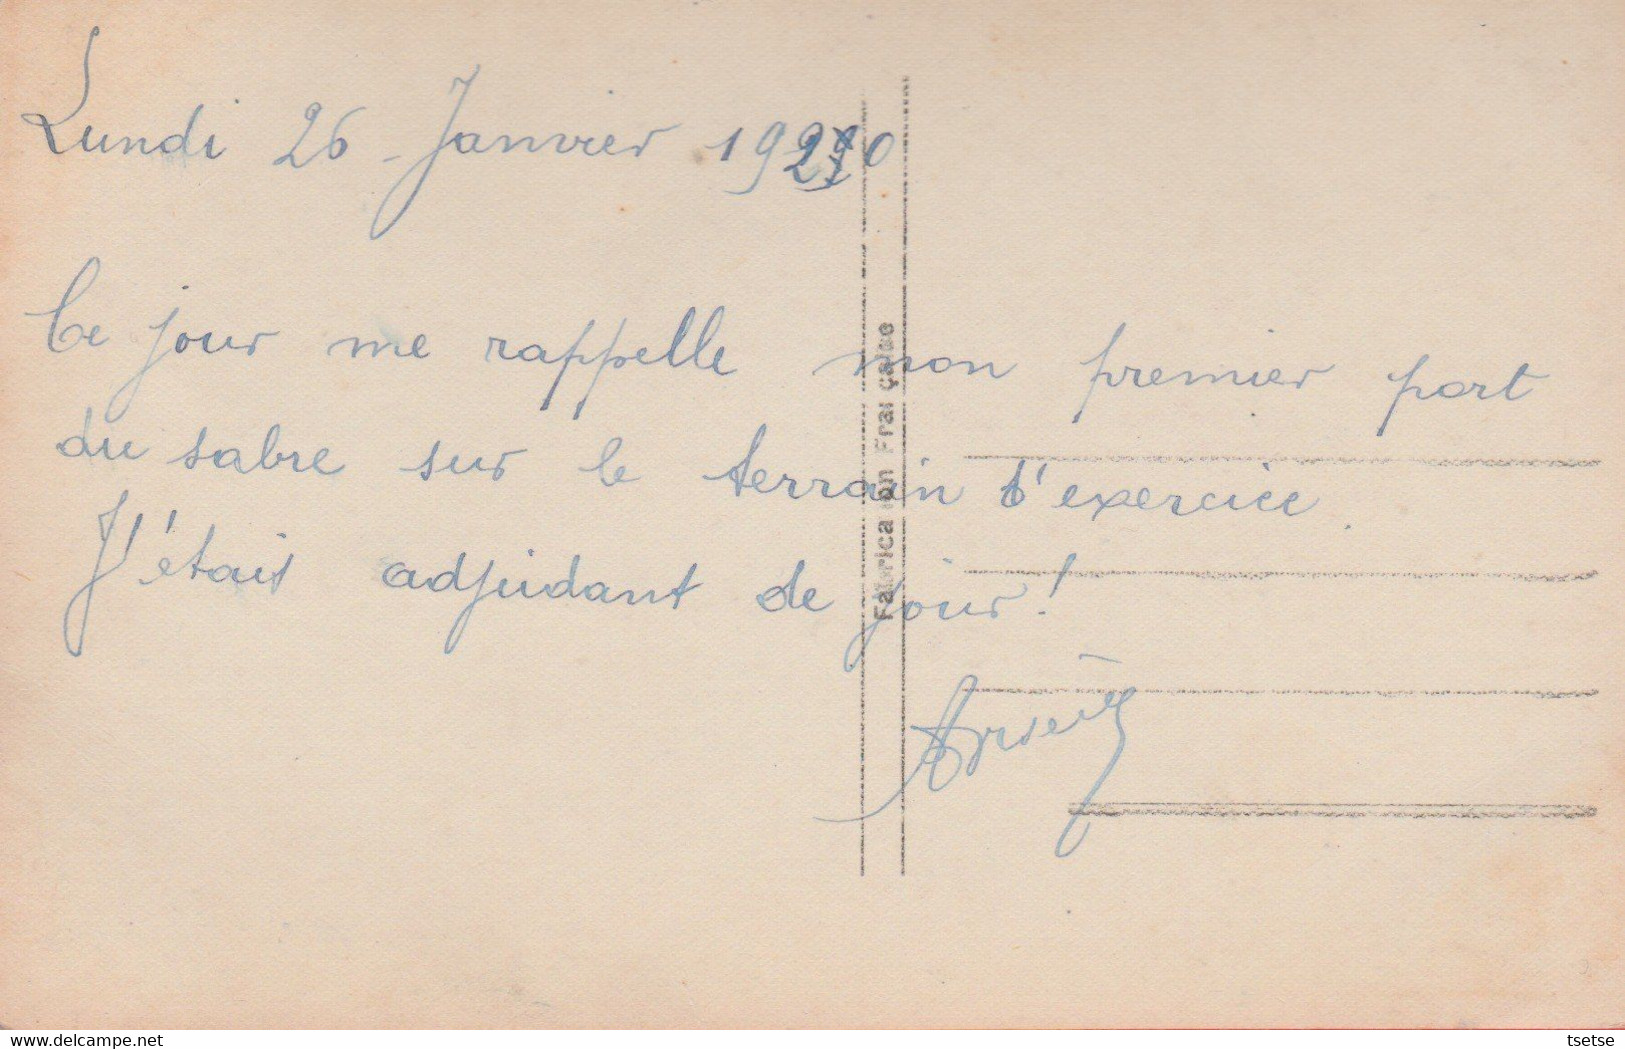 Lundi 26 Janvier 1920
Ce jour me rappelle mon premier port
du sabre sur le terrain d'exercice.
J'étais adjudant de jour!
Fabrication Française
www.delcampe.net
tsetse